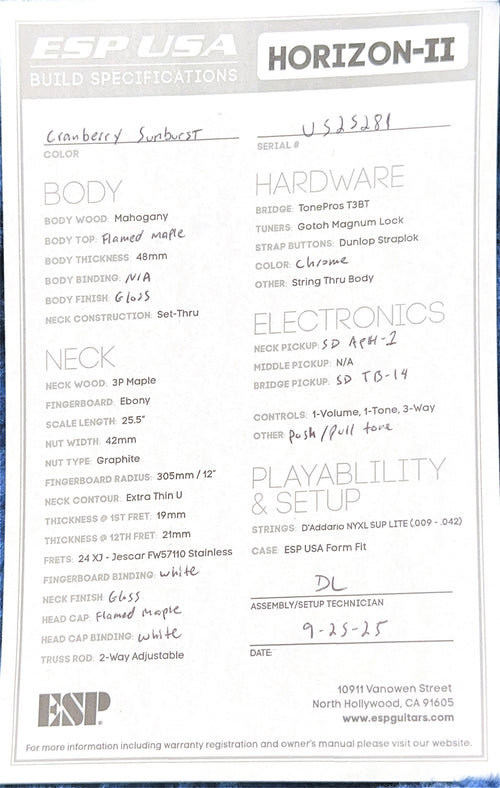 ESP USA
BUILD SPECIFICATIONS
HORIZON-II
Cranberry Sunburst
COLOR
US25281
SERIAL #
BODY
BODY WOOD: Mahogany
BODY TOP: Flamed Maple
BODY THICKNESS: 48mm
BODY BINDING: N/A
BODY FINISH: Gloss
NECK CONSTRUCTION: Set-Thru
NECK
NECK WOOD: 3P Maple
FINGERBOARD: Ebony
SCALE LENGTH: 25.5"
NUT WIDTH: 42mm
NUT TYPE: Graphite
FINGERBOARD RADIUS: 305mm / 12"
NECK CONTOUR: Extra Thin U
THICKNESS @ 1ST FRET: 19mm
THICKNESS @ 12TH FRET: 21mm
FRETS: 24 XJ - Jescar FW57110 Stainless
FINGERBOARD BINDING: White
NECK FINISH: Gloss
HEAD CAP: Flamed Maple
HEAD CAP BINDING: White
TRUSS ROD: 2-Way Adjustable
HARDWARE
BRIDGE: TonePros T3BT
TUNERS: Gotoh Magnum Lock
STRAP BUTTONS: Dunlop Straplok
COLOR: Chrome
OTHER: String Thru Body
ELECTRONICS
NECK PICKUP: SD APH-1
MIDDLE PICKUP: N/A
BRIDGE PICKUP: SD TB-14
CONTROLS: 1-Volume, 1-Tone, 3-Way
OTHER: Push/Pull tone
PLAYABLILITY
& SETUP
STRINGS: D'Addario NYXL SUP LITE (.009 - .042)
CASE: ESP USA Form Fit
DL
ASSEMBLY/SETUP TECHNICIAN
9-25-25
DATE:
ESP
10911 Vanowen Street
North Hollywood, CA 91605
www.espguitars.com
For more information including warranty registration and owner's manual please visit our website.